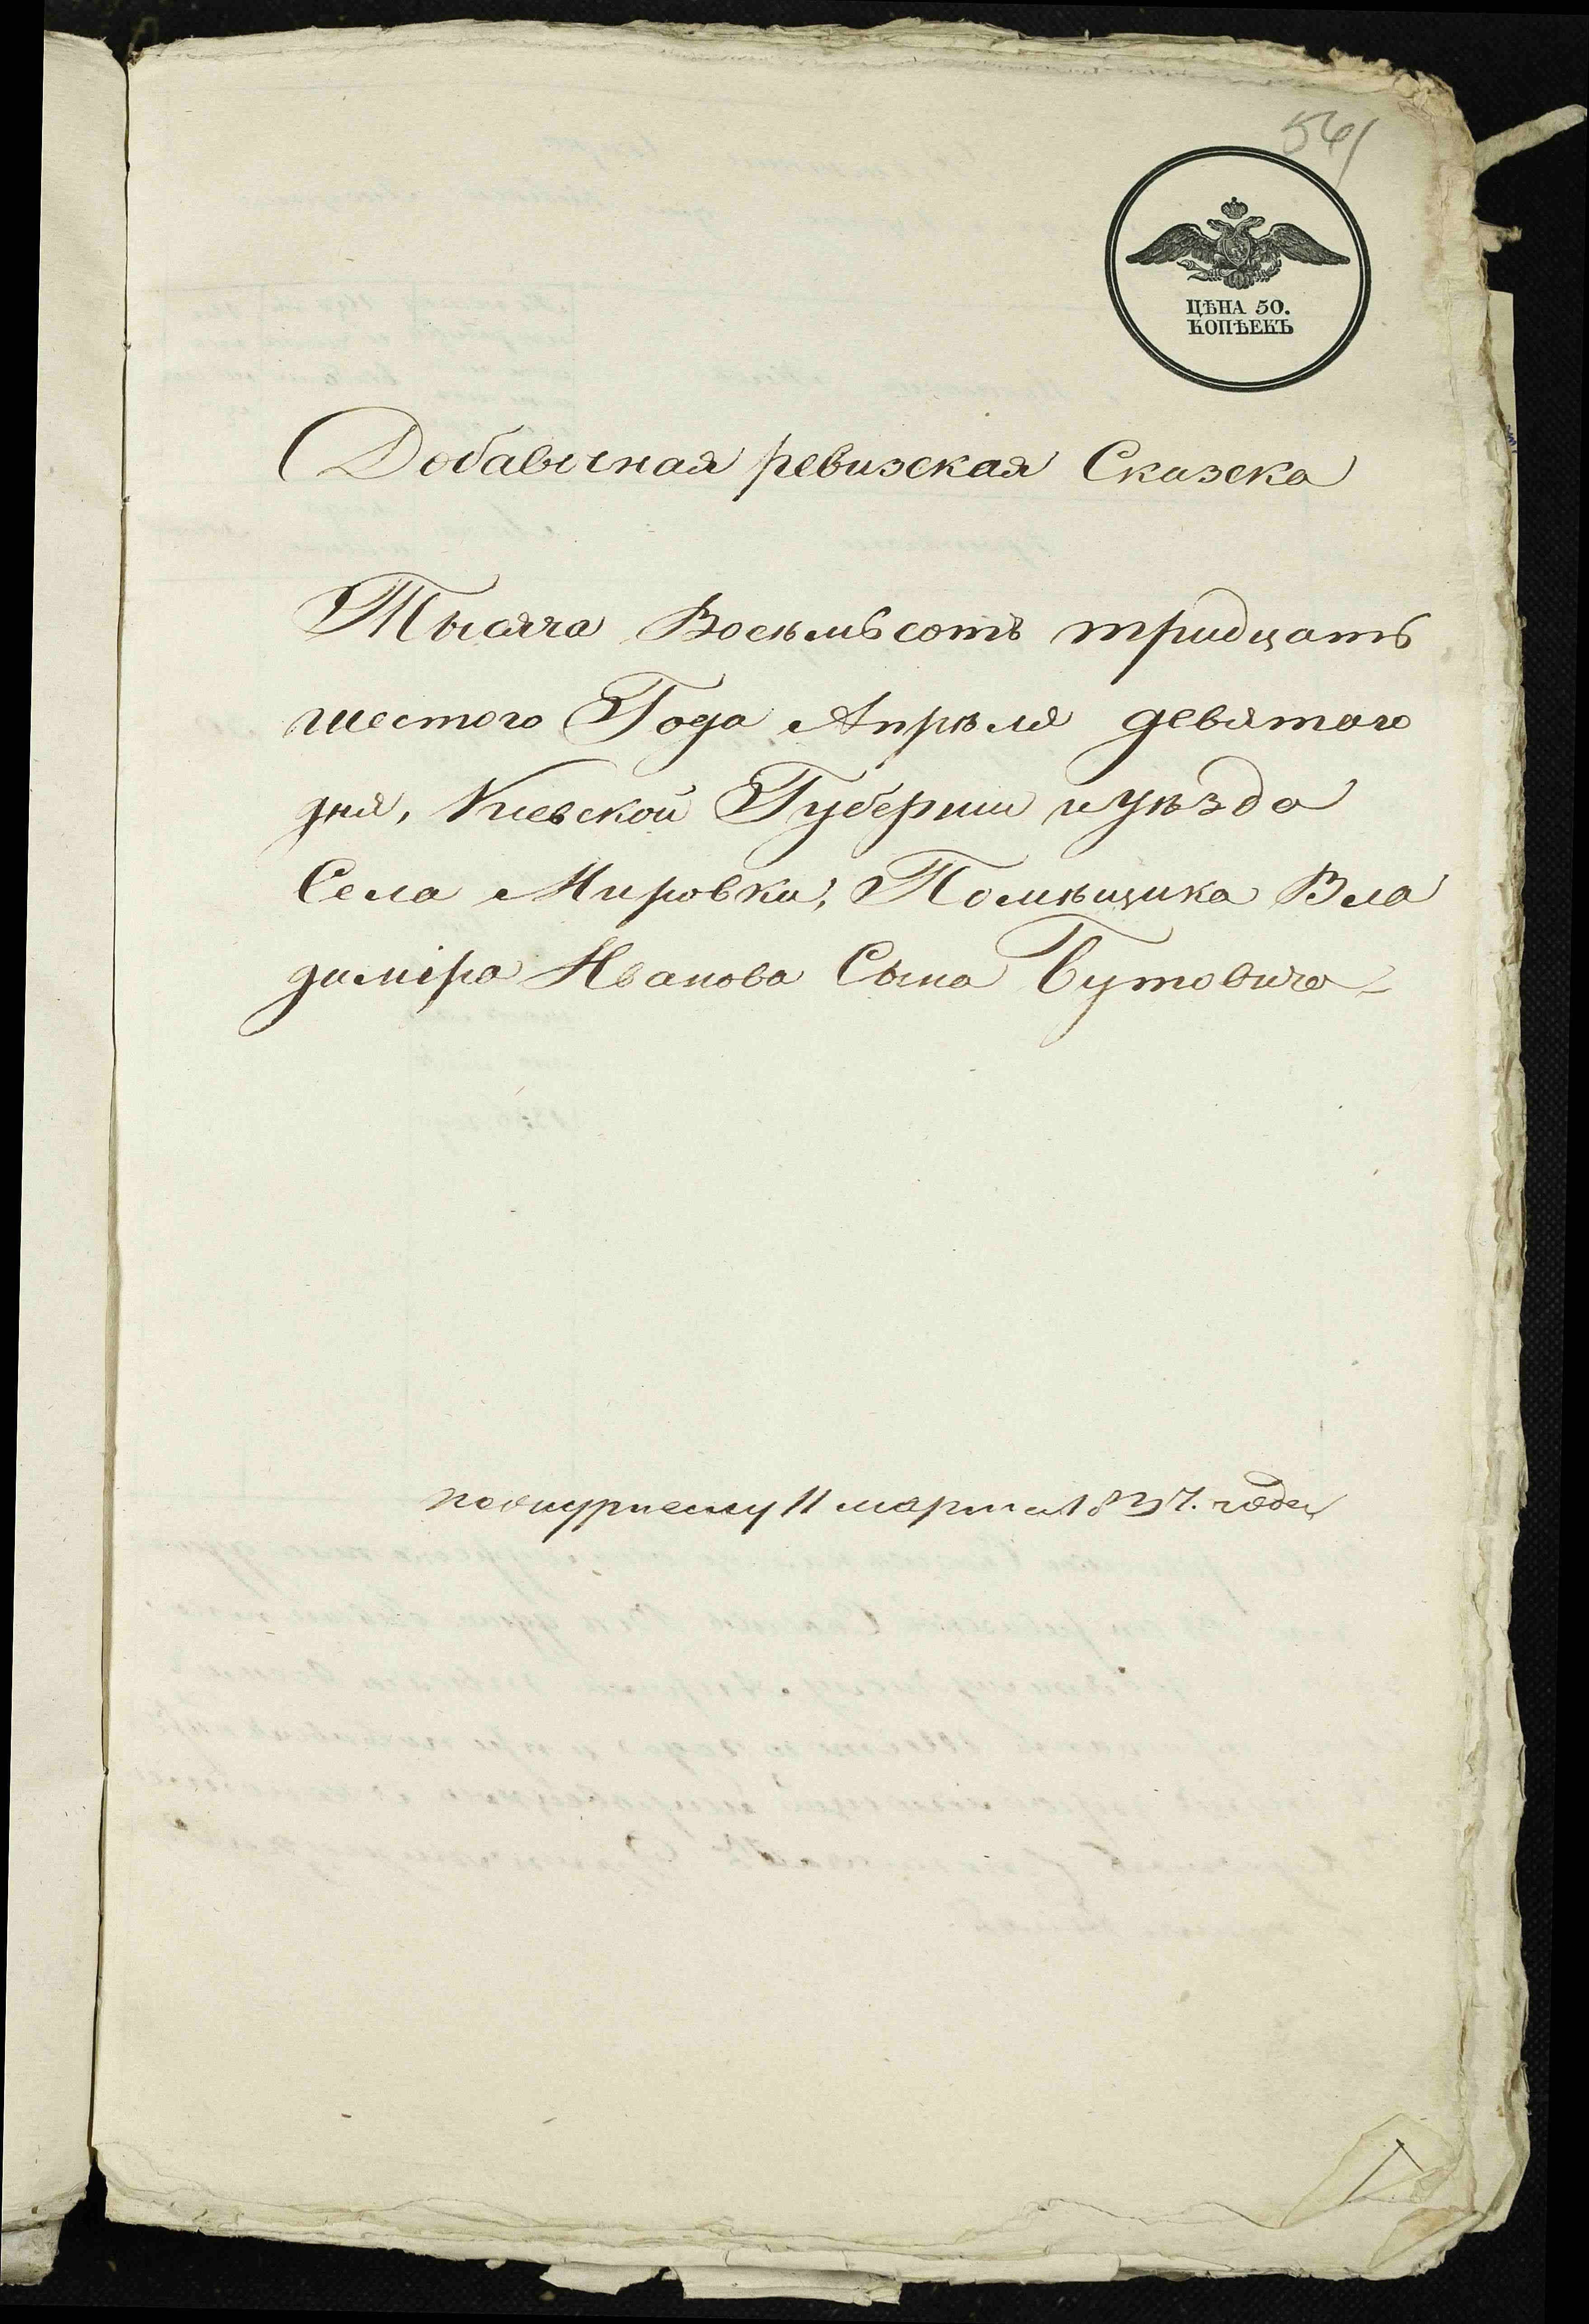 561
ЦѢНА 50.
КОПѢЕКЪ
Добавочная ревизская Сказска
Тысяча Восѣмьсотъ тридцать
шестого Года Апрѣля девятого
дня, Киевской Губернии и уѣзда
Села Мировки, Помѣщика Вла
димiра Иванова Сына Бутовича
по журналу 11 марта 1837. года